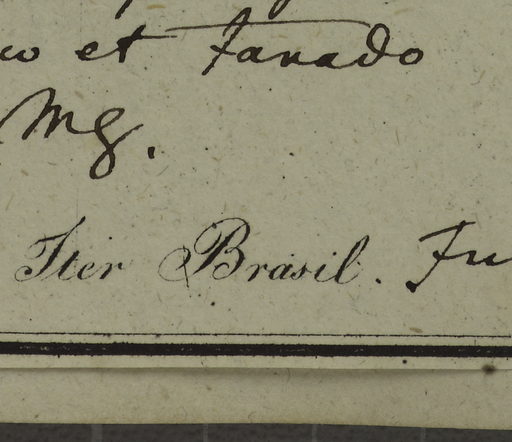 et Fanado
Mg.
Iter Brasil. Ju